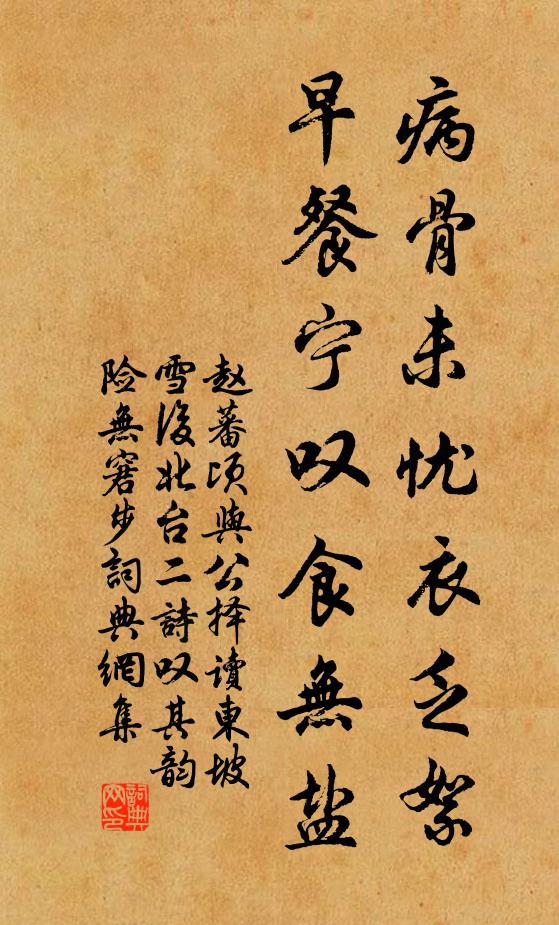 病骨未忧衣乏絮
早餐宁叹食無盐
赵蕃顷與公择讀東坡
雪後北台二詩叹其韵
险無窘步詞典網集
詞典
网印